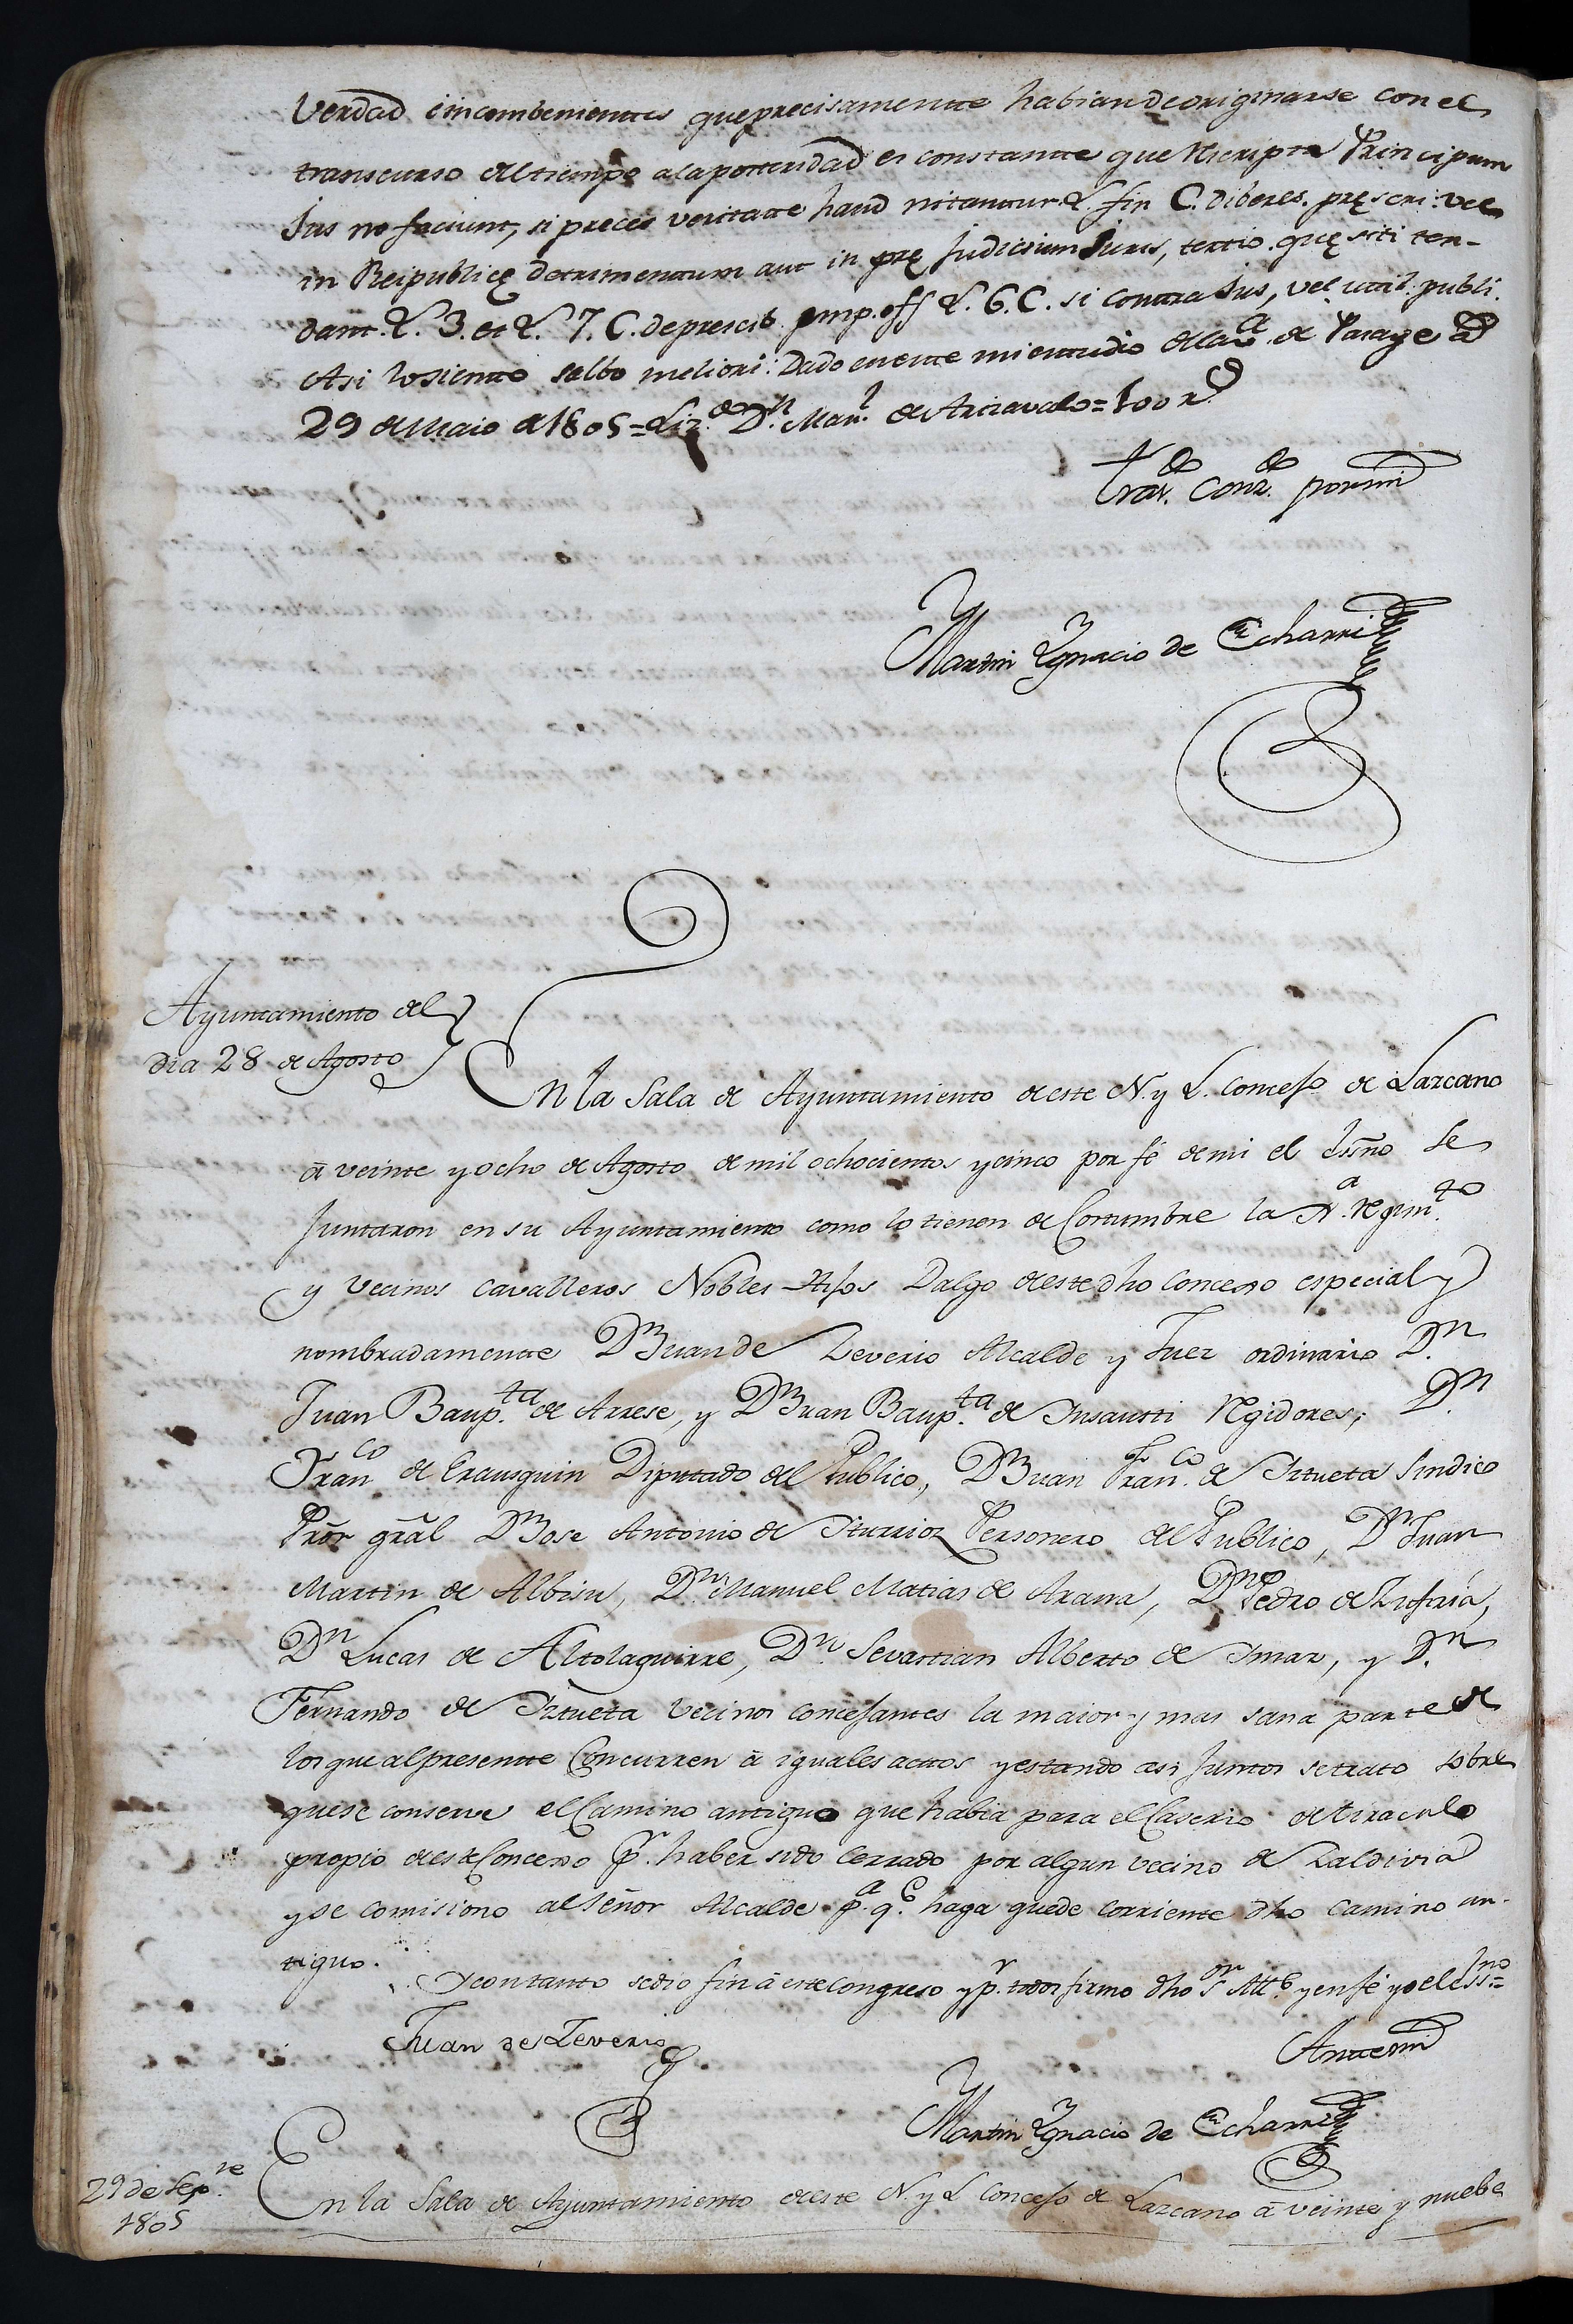 Verdad è incombenientes queprecisamentte habian deoriginarse con el
transcurso deltiempo alaposteridad es constantte que Rescripta Principum
Jus no faciunt, si preces veritatte haud nitanttur L. fin C. diberes. pręscri: vel
in Reipublicę detrimenttum aut in prę Judicium Juris, tertio quęsiti ten-
dant. L. 3. et L. 7. C. deprescib. Jmp. off L. 6. C. si contra Jus, vel utilt. publi.
Asi losientto salbo meliori: Dado eneste miestudio dela Vª de
29 de Maio de 1805=Lizdo. Dn. Manl. de =100 rs
Trasdo. Conzdo. pormi
Martin Ygnacio de Echarri
Ayuntamiento del
dia 28 de Agosto
En la Sala de Ayuntamiento deeste N. y L. Concejo de Lazcano
à veinte yocho de Agosto demil ochocientos ycinco por fé demi el Essno se
Juntaron en su Ayuntamiento como lo tienen de Costumbre la Jª. Regimto.
y vecinos cavalleros Nobles Hijos Dalgo deestedho Concejo especial y
nombradamentte Dn Juan de Zeverio Alcalde y Juez ordinario Dn.
Juan Baupta. de Arrese, y Dn Juan Baupta. de Insausti Regidores; Dn.
Franco de Erausquin Diputado del Publico, Dn Juan Franco. de Iztueta Sindico
Pror gral Dn Jose Antonio de Iturrioz Personero del Publico, Dn Juan
Martin de Albisu, Dn. Manuel Matias de Arana, Dn Pedro de Zufiria,
Dn Lucas de Altolaguirre, Dn. Sevastian Alberto de Imaz, y Dn.
Fernando de Iztueta vecinos concejantes la maior y mas sana parte de
losque alpresentte Concurren à iguales acttos yestando asi Juntos setrato sobre
quese conserve elCamino antiguo que habia para elCaserio de
propio deesteConcejo pr. haber sido cerrado por algun vecino de Zaldivia
yse comisiono alseñor Alcalde pª. qe. haga quede corriente dho Camino an-
tiguo.
Yconttanto sedio fin à esteCongreso yp.r todos firmo dho Sor Alle yenfé yoelessno=
Juan de Zeverio
Anttemi
Martin Ygnacio de Echarri
29 de Sepre.
1805
En la Sala de Ayuntamiento deeste N. y L Concejo de Lazcano à veinte y nuebe